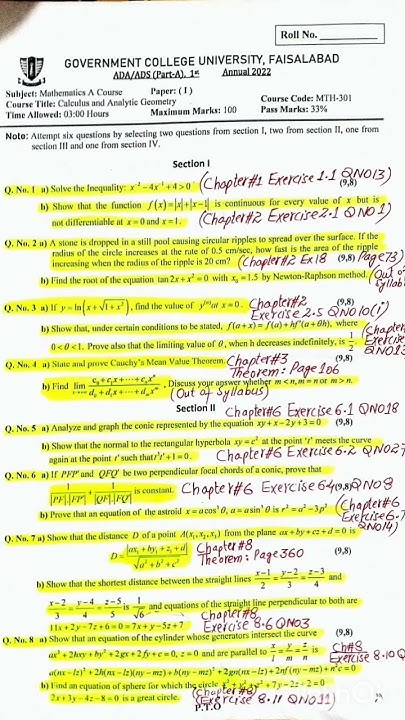 Roll No. ________
GOVERNMENT COLLEGE UNIVERSITY, FAISALABAD
ADA/ADS (Part-A), 1st Annual 2022
Subject: Mathematics A Course Paper: ( I )
Course Title: Calculus and Analytic Geometry Course Code: MTH-301
Time Allowed: 03:00 Hours Maximum Marks: 100 Pass Marks: 33%
Note: Attempt six questions by selecting two questions from section I, two from section II, one from
section III and one from section IV.
Section I
Q. No. 1 a) Solve the Inequality: x⁻² − 4x⁻¹ + 4 > 0 (Chapter#1 Exercise 1.1 QNO13) (9,8)
b) Show that the function f(x)=|x|+|x−1| is continuous for every value of x but is
not differentiable at x = 0 and x = 1. (Chapter#2 Exercise 2.1 QNO1)
Q. No. 2 a) A stone is dropped in a still pool causing circular ripples to spread over the surface. If the
radius of the circle increases at the rate of 0.5 cm/sec, how fast is the area of the ripple
increasing when the radius of the ripple is 20 cm? (Chapter#2 Ex18 Page73) (9,8)
b) Find the root of the equation tan 2x + x² = 0 with x₀ = 1.5 by Newton-Raphson method. (Out of
Syllab
Q. No. 3 a) If y = ln(x + √(1+x²)), find the value of y⁽ⁿ⁾ at x = 0. Chapter#2 (9,8)
Exercise 2.5 QNO10(i)
b) Show that, under certain conditions to be stated, f(a+x) = f(a) + hf'(a+θh), where (Chapter
0<θ<1. Prove also that the limiting value of θ, when h decreases indefinitely, is 1/2 Exercise
QNO13
Q. No. 4 a) State and prove Cauchy's Mean Value Theorem. Chapter#3 (9,8)
Theorem: Page 106
b) Find lim (c₀ + c₁x + ··· + cₘxᵐ)/(d₀ + d₁x + ··· + dₙxⁿ). Discuss your answer whether m < n, m = n or m > n.
(Out of Syllabus)
Section II Chapter#6 Exercise 6.1 QNO18
Q. No. 5 a) Analyze and graph the conic represented by the equation xy + x − 2y + 3 = 0 (9,8)
b) Show that the normal to the rectangular hyperbola xy = c² at the point 't' meets the curve
again at the point t' such that t³t' + 1 = 0. Chapter#6 Exercise 6.2 QNO27
Q. No. 6 a) If PFP' and QFQ' be two perpendicular focal chords of a conic, prove that
1/(|PF|.|FP'|) + 1/(|QF|.|FQ'|) is constant. Chapter#6 Exercise 6.4 QNO8 (9,8)
b) Prove that an equation of the astroid x = a cos³θ, y = a sin³θ is r² = a² − 3p² (Chapter#6
Exercise 6.7
QNO14)
Q. No. 7 a) Show that the distance D of a point A(x₁,x₂,x₃) from the plane ax + by + cz + d = 0 is
D = |ax₁ + by₁ + z₁ + d|/√(a² + b² + c²) Chapter#8 (9,8)
Theorem: Page 360
b) Show that the shortest distance between the straight lines (x−1)/2 = (y−2)/3 = (z−3)/4 and
(x−2)/3 = (y−4)/4 = (z−5)/5 is 1/√6 and equations of the straight line perpendicular to both are
11x + 2y − 7z + 6 = 0 = 7x + y − 5z + 7 Chapter#8
Exercise 8.6 QNO3
Q. No. 8 a) Show that an equation of the cylinder whose generators intersect the curve (9,8)
ax² + 2hxy + by² + 2gx + 2fy + c = 0, z = 0 and are parallel to x/l = y/m = z/n is Ch#8
Exercise 8.10 Q
a(nx − lz)² + 2h(nx − lz)(ny − mz) + b(ny − mz)² + 2gn(nx − lz) + 2nf(ny − mz) + n²c = 0
b) Find an equation of sphere for which the circle x² + y² + z² + 7y − 2z + 2 = 0
2x + 3y − 4z − 8 = 0 is a great circle. (Chapter#8 Exercise 8.11 QNO11)
P.T.O